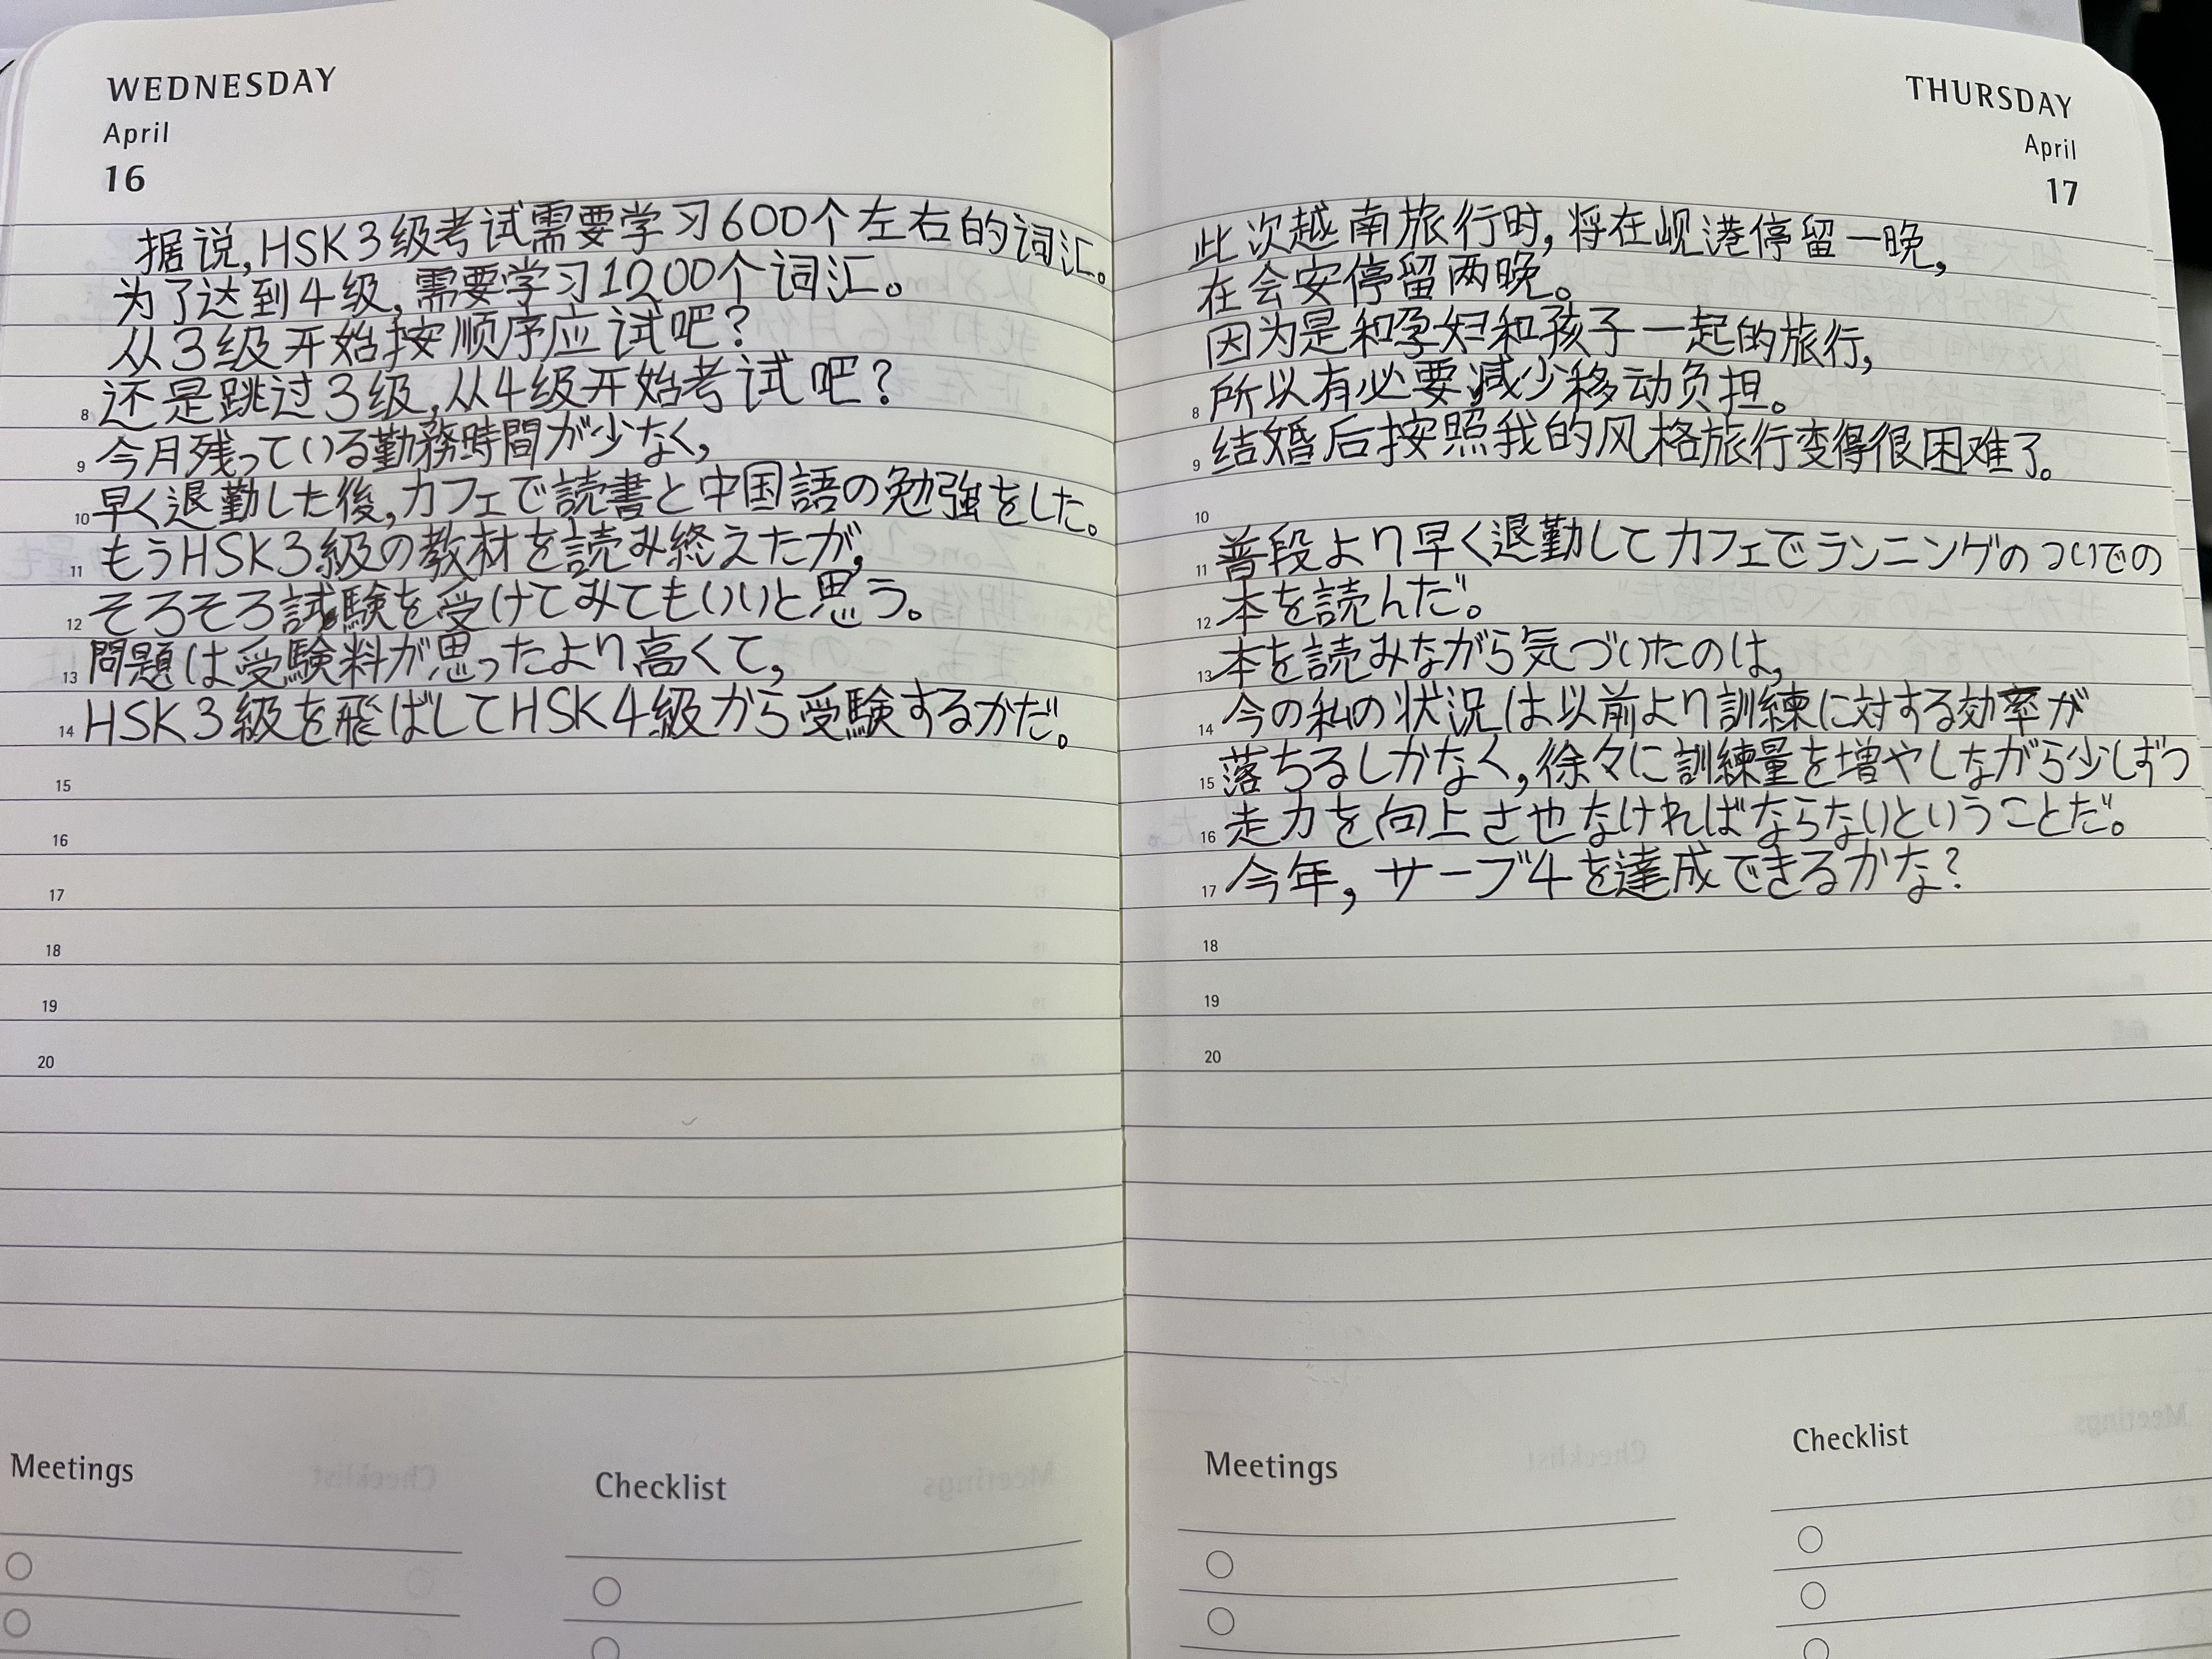 WEDNESDAY
April
16
据说,HSK3级考试需要学习600个左右的词汇。
为了达到4级,需要学习1200个词汇。
从3级开始按顺序应试吧?
8 还是跳过3级,从4级开始考试吧?
9 今月残っている勤務時間が少なく,
10 早く退勤した後,カフェで読書と中国語の勉強をした。
11 もうHSK3級の教材を読み終えたが,
12 そろそろ試験を受けてみてもいいと思う。
13 問題は受験料が思ったより高くて,
14 HSK3級を飛ばしてHSK4級から受験するかだ。
15
16
17
18
19
20
Meetings
Checklist
THURSDAY
April
17
此次越南旅行时,将在岘港停留一晚,
在会安停留两晚。
因为是和孕妇和孩子一起的旅行,
8 所以有必要减少移动负担。
9 结婚后按照我的风格旅行变得很困难了。
10
11 普段より早く退勤してカフェでランニングのついでの
12 本を読んだ。
13 本を読みながら気づいたのは,
14 今の私の状況は以前より訓練に対する効率が
15 落ちるしかなく,徐々に訓練量を増やしながら少しずつ
16 走力を向上させなければならないということだ。
17 今年,サーブ4を達成できるかな?
18
19
20
Meetings
Checklist